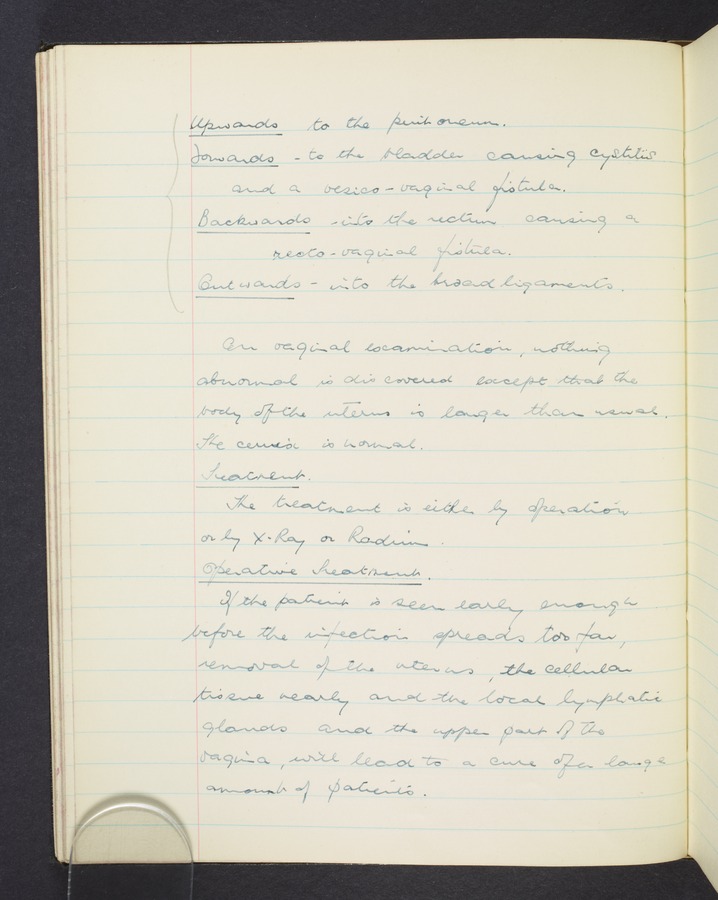 Upwards to the peritoneum.
Forwards - to the bladder causing cystitis
and a vesico-vaginal fistula.
Backwards - into the rectum causing a
recto-vaginal fistula.
Outwards - into the broad ligaments.
On vaginal examination, nothing
abnormal is discovered except that the
body of the uterus is larger than usual.
The cervix is normal.
Treatment.
The treatment is either by operation
or by X-Ray or Radium.
Operative Treatment.
If the patient is seen early enough
before the infection spreads too far,
removal of the uterus, the cellular
tissue nearby and the local lymphatic
glands and the upper part of the
vagina, will lead to a cure of a large
amount of patients.